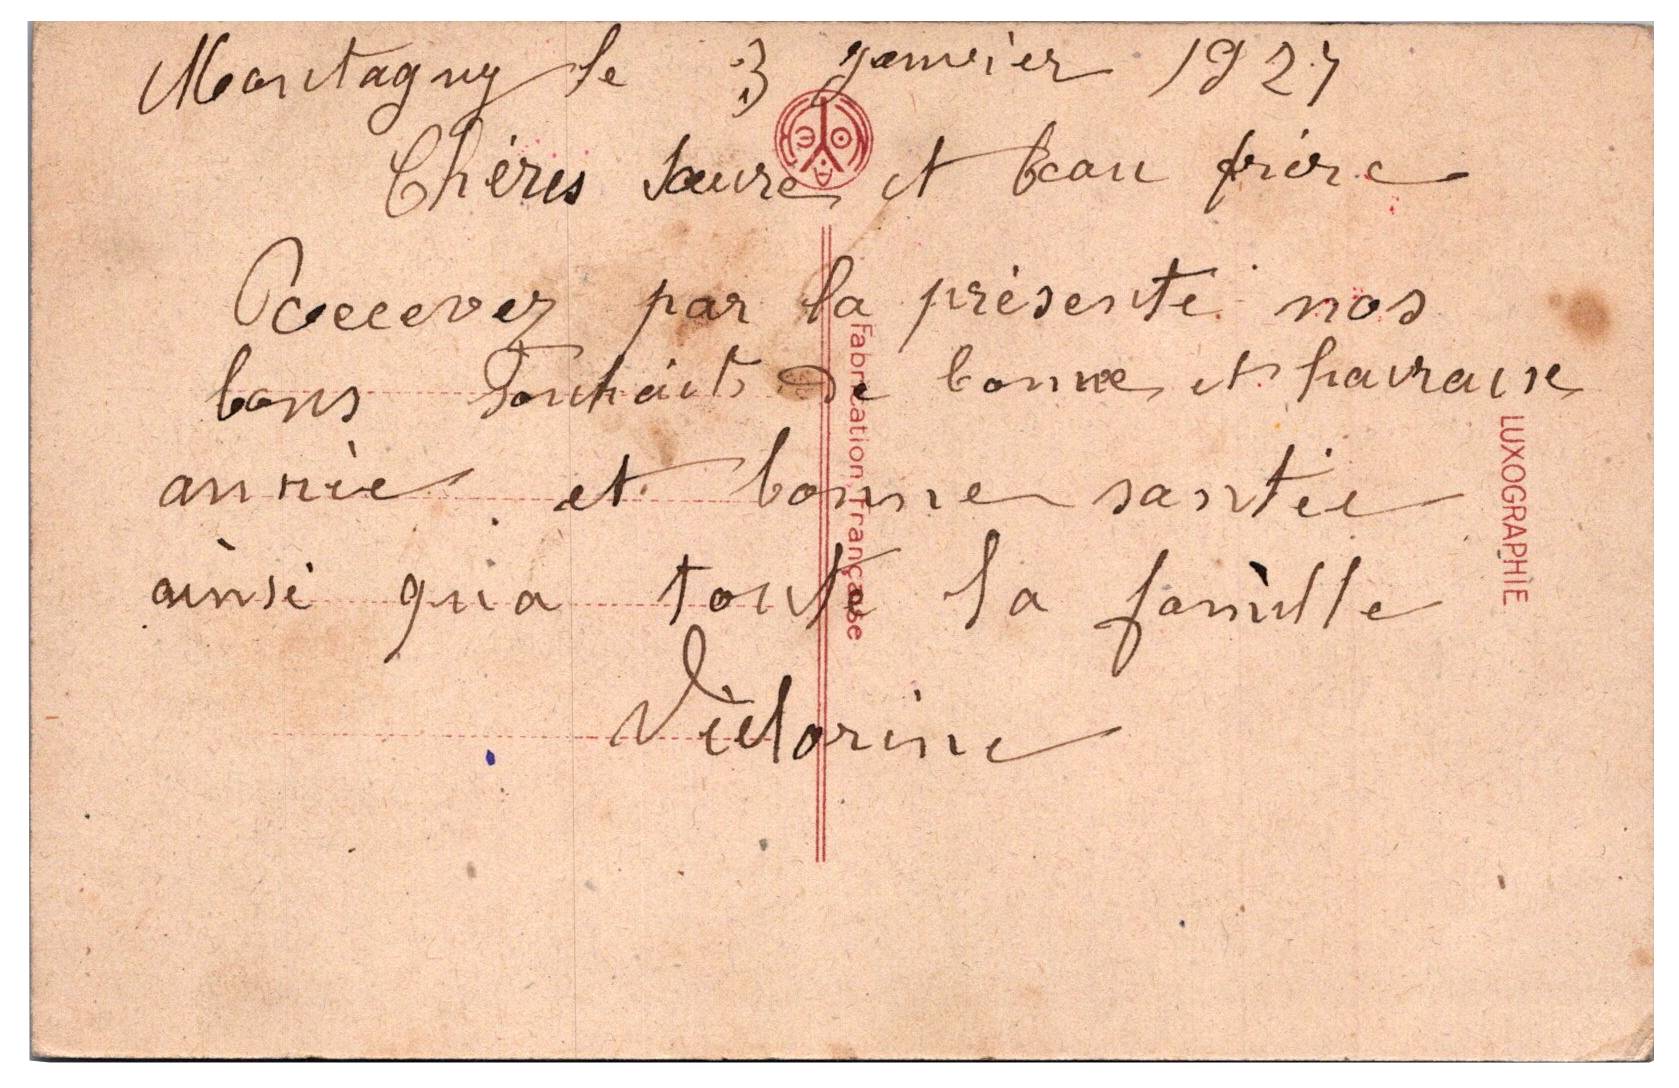 Montagny le 3 Janvier 1927
Chéres Soeure et beau frére
Recevez par la présente nos
bons Souhaits de bonne et
année et bonne santée
ainsi qua toute la famille
Victorine
Fabrication Française
LUXOGRAPHIE